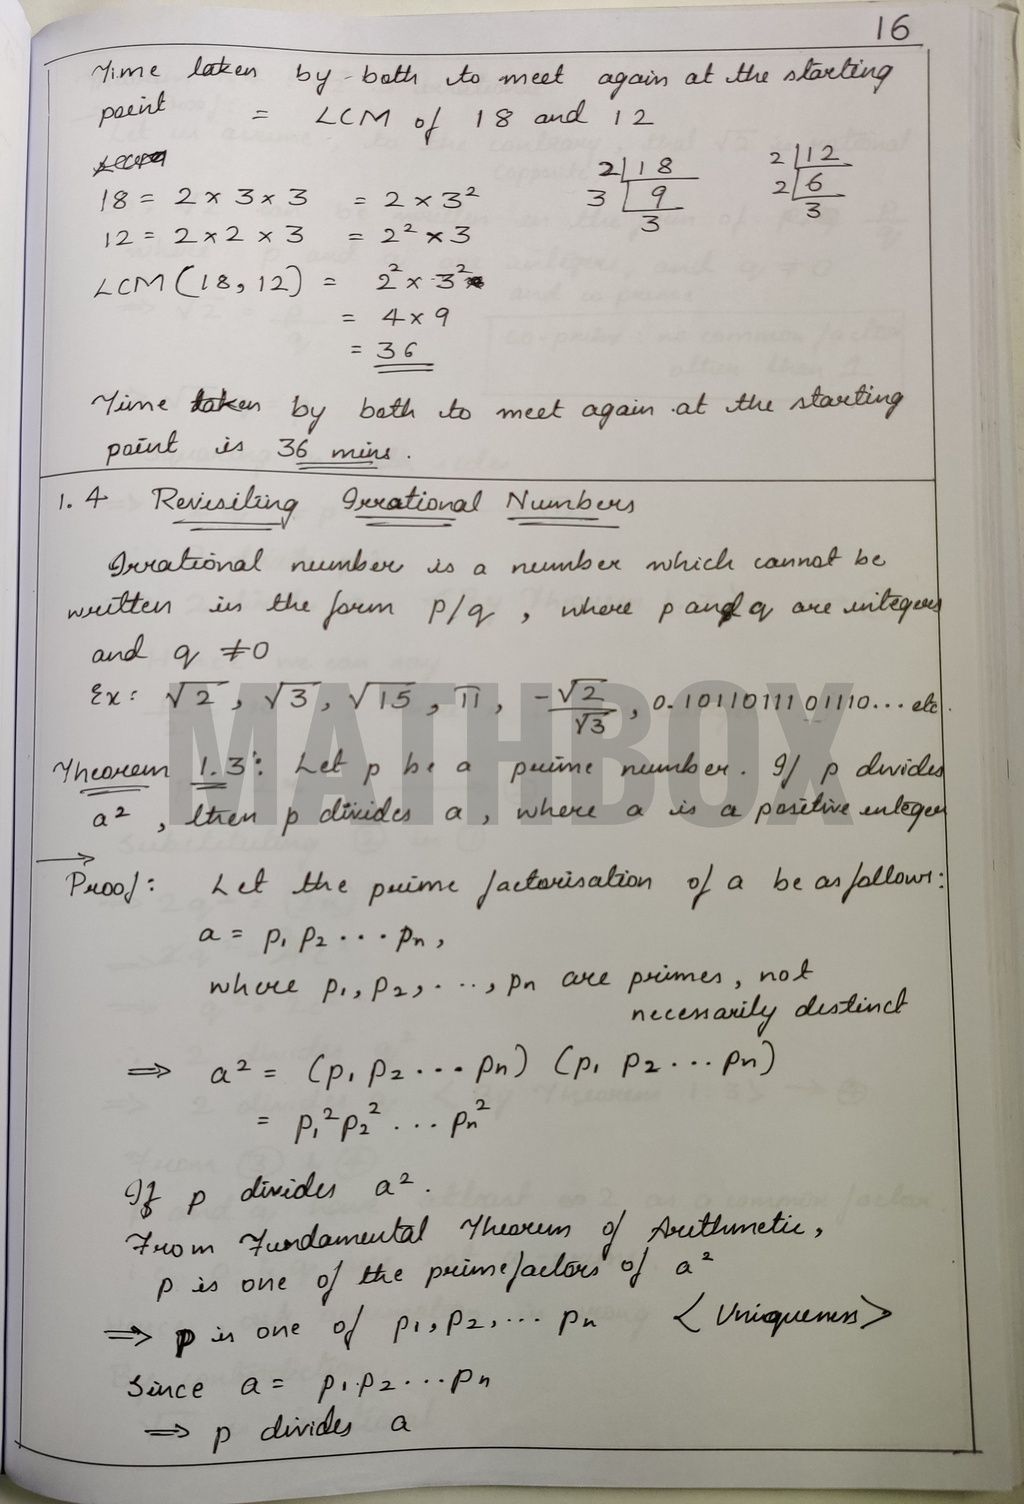 16
Time taken by both to meet again at the starting
point = LCM of 18 and 12
18 = 2 × 3 × 3 = 2 × 3²
2 | 18
3 | 9
3
2 | 12
2 | 6
3
12 = 2 × 2 × 3 = 2² × 3
LCM (18, 12) = 2² × 3²
= 4 × 9
= 36
Time taken by both to meet again at the starting
point is 36 mins.
1.4 Revisiting Irrational Numbers
Irrational number is a number which cannot be
written in the form p/q, where p and q are integers
and q ≠ 0
Ex: √2, √3, √15, π, -√2/√3, 0.1011011101110... etc.
MATHBOX
Theorem 1.3: Let p be a prime number. If p divides
a², then p divides a, where a is a positive integer
Proof: Let the prime factorisation of a be as follows:
a = p₁ p₂ ... pₙ,
where p₁, p₂, ..., pₙ are primes, not
necessarily distinct
⇒ a² = (p₁ p₂ ... pₙ) (p₁ p₂ ... pₙ)
= p₁² p₂² ... pₙ²
If p divides a².
From Fundamental Theorem of Arithmetic,
p is one of the prime factors of a²
⇒ p is one of p₁, p₂, ... pₙ <Uniqueness>
Since a = p₁.p₂ ... pₙ
⇒ p divides a